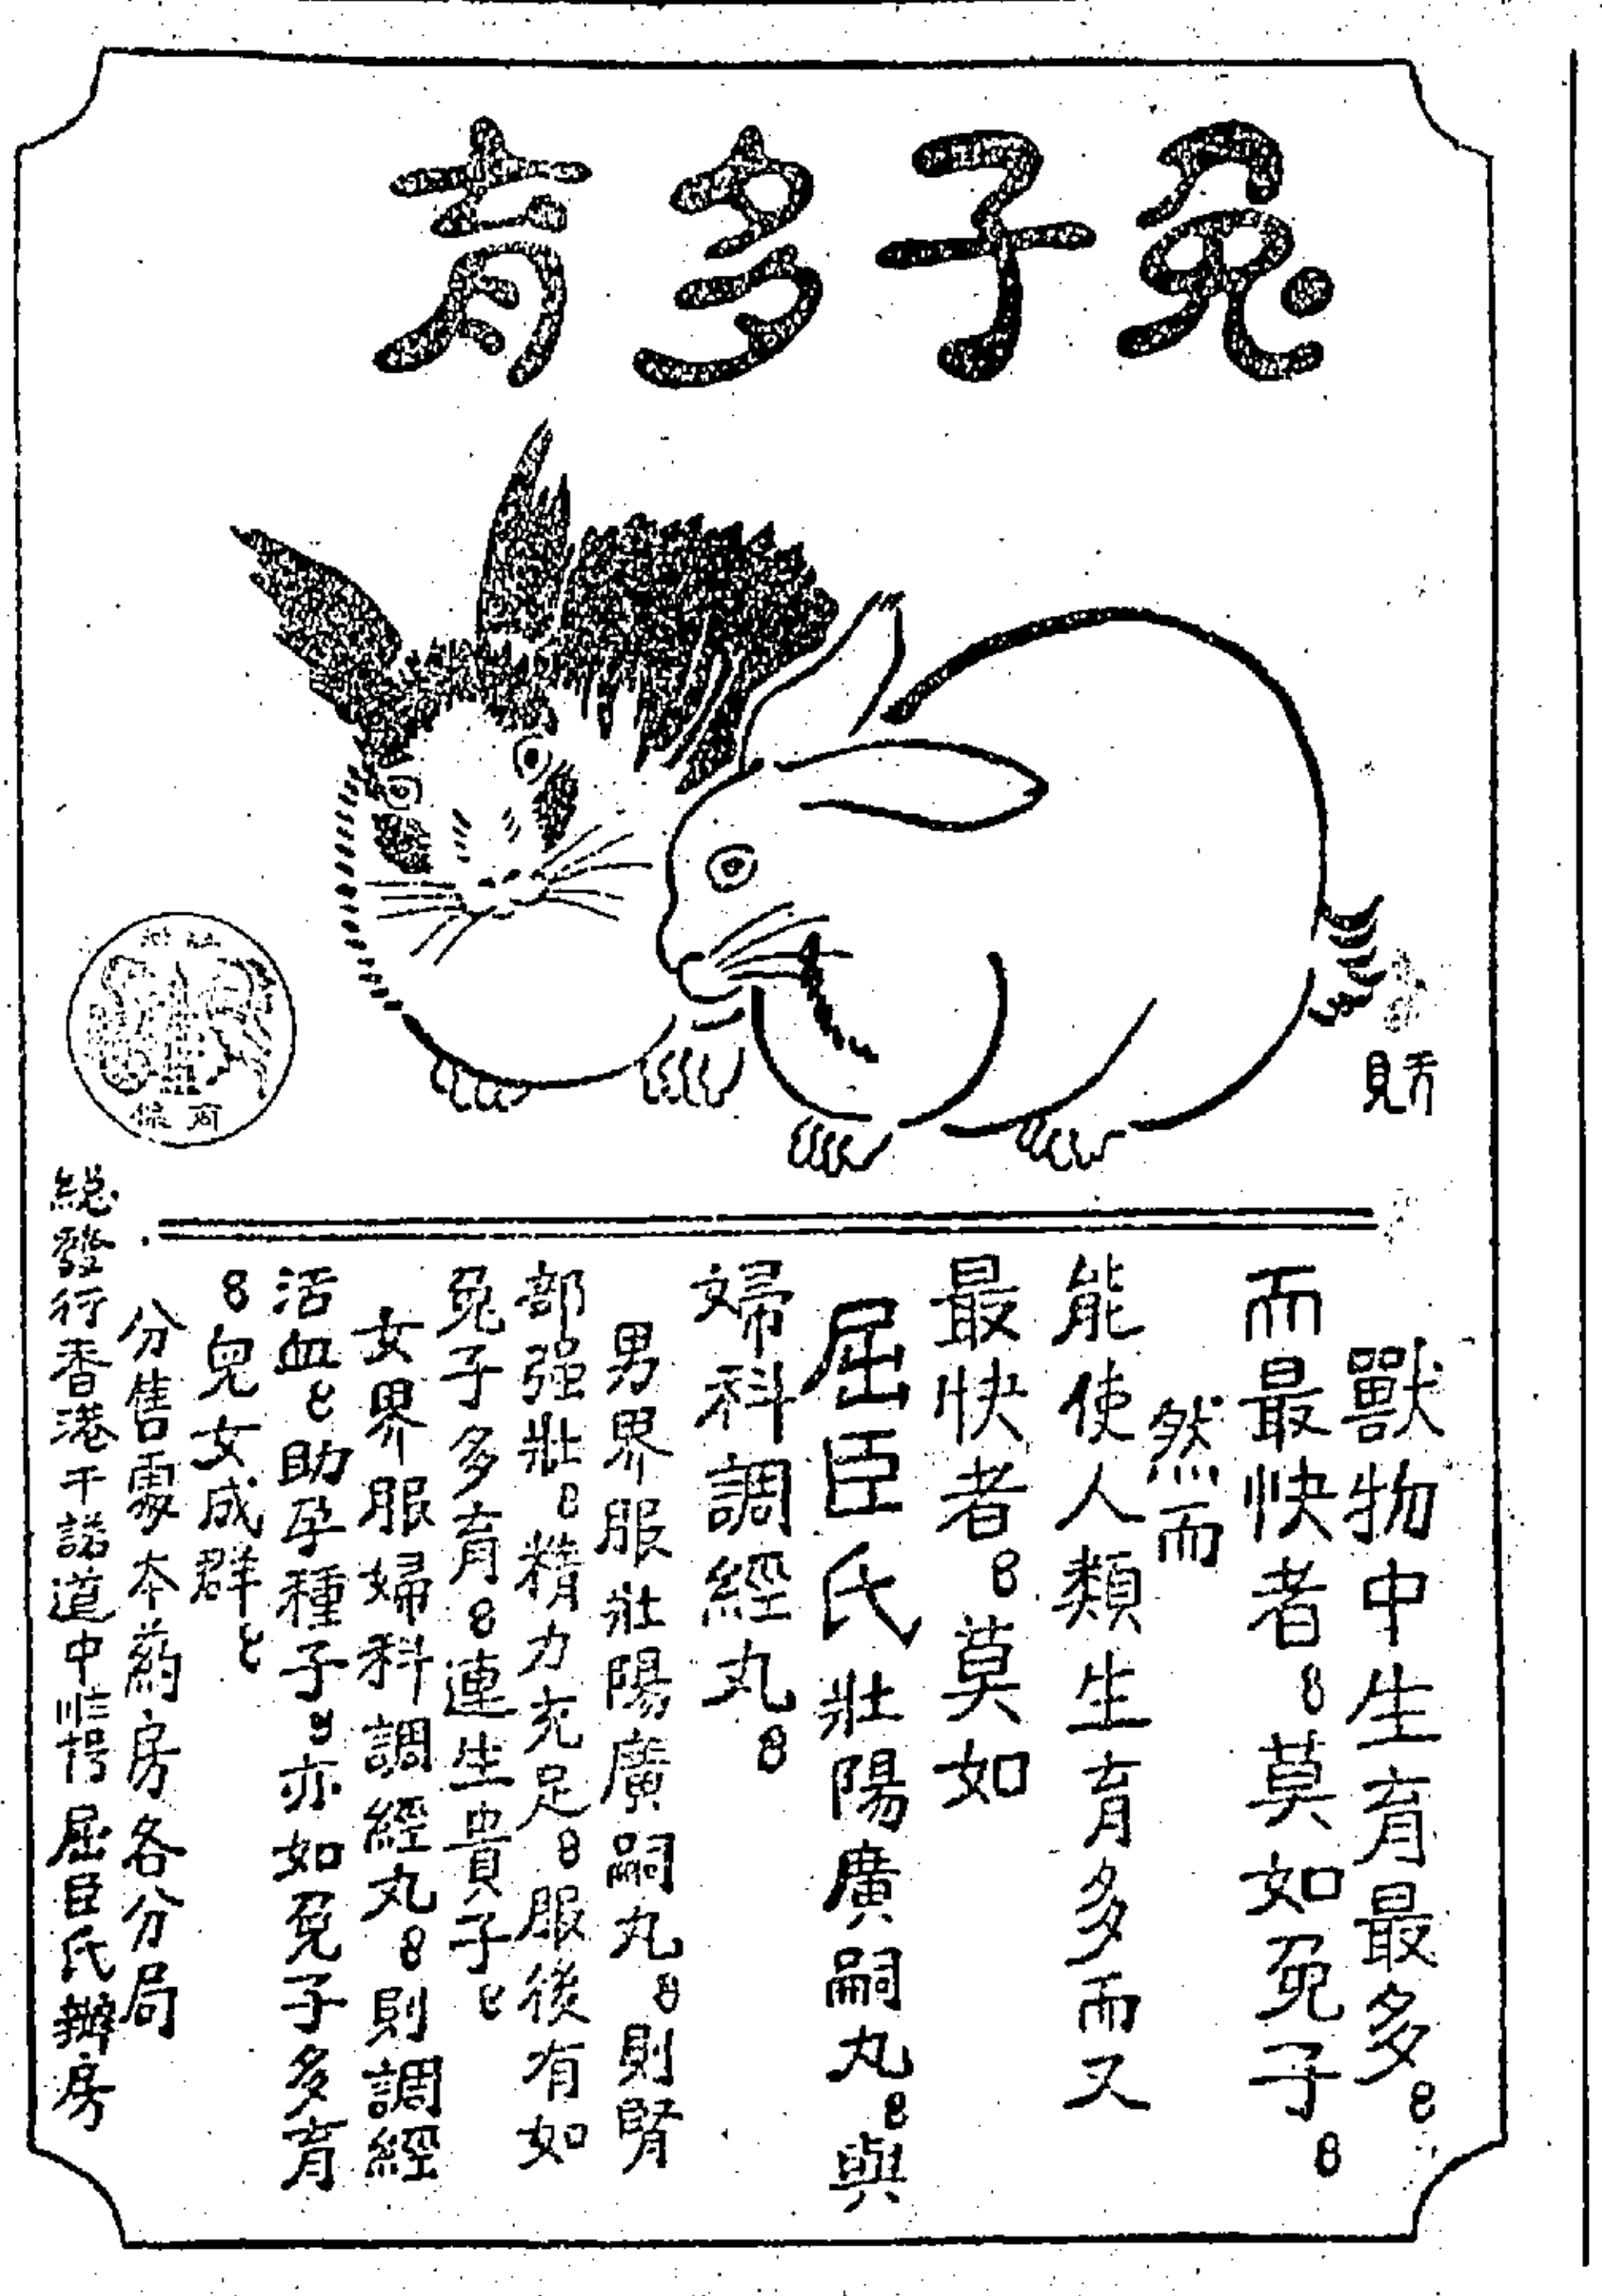 兔子多育
獸物中生育最多。
而最快者。莫如兔子。
然而
能使人類生育多而又
最快者。莫如
屈臣氏壯陽廣嗣丸。與
婦科調經丸。
男界服壯陽廣嗣丸。則腎
部强壯。精力充足。服後有如
兔子多育。連生貴子。
女界服婦科調經丸。則調經
活血。助孕種子。亦如兔子多育
。兒女成群。
分售處本葯房各分局
總發行香港干諾道中 屈臣氏辦房
商標